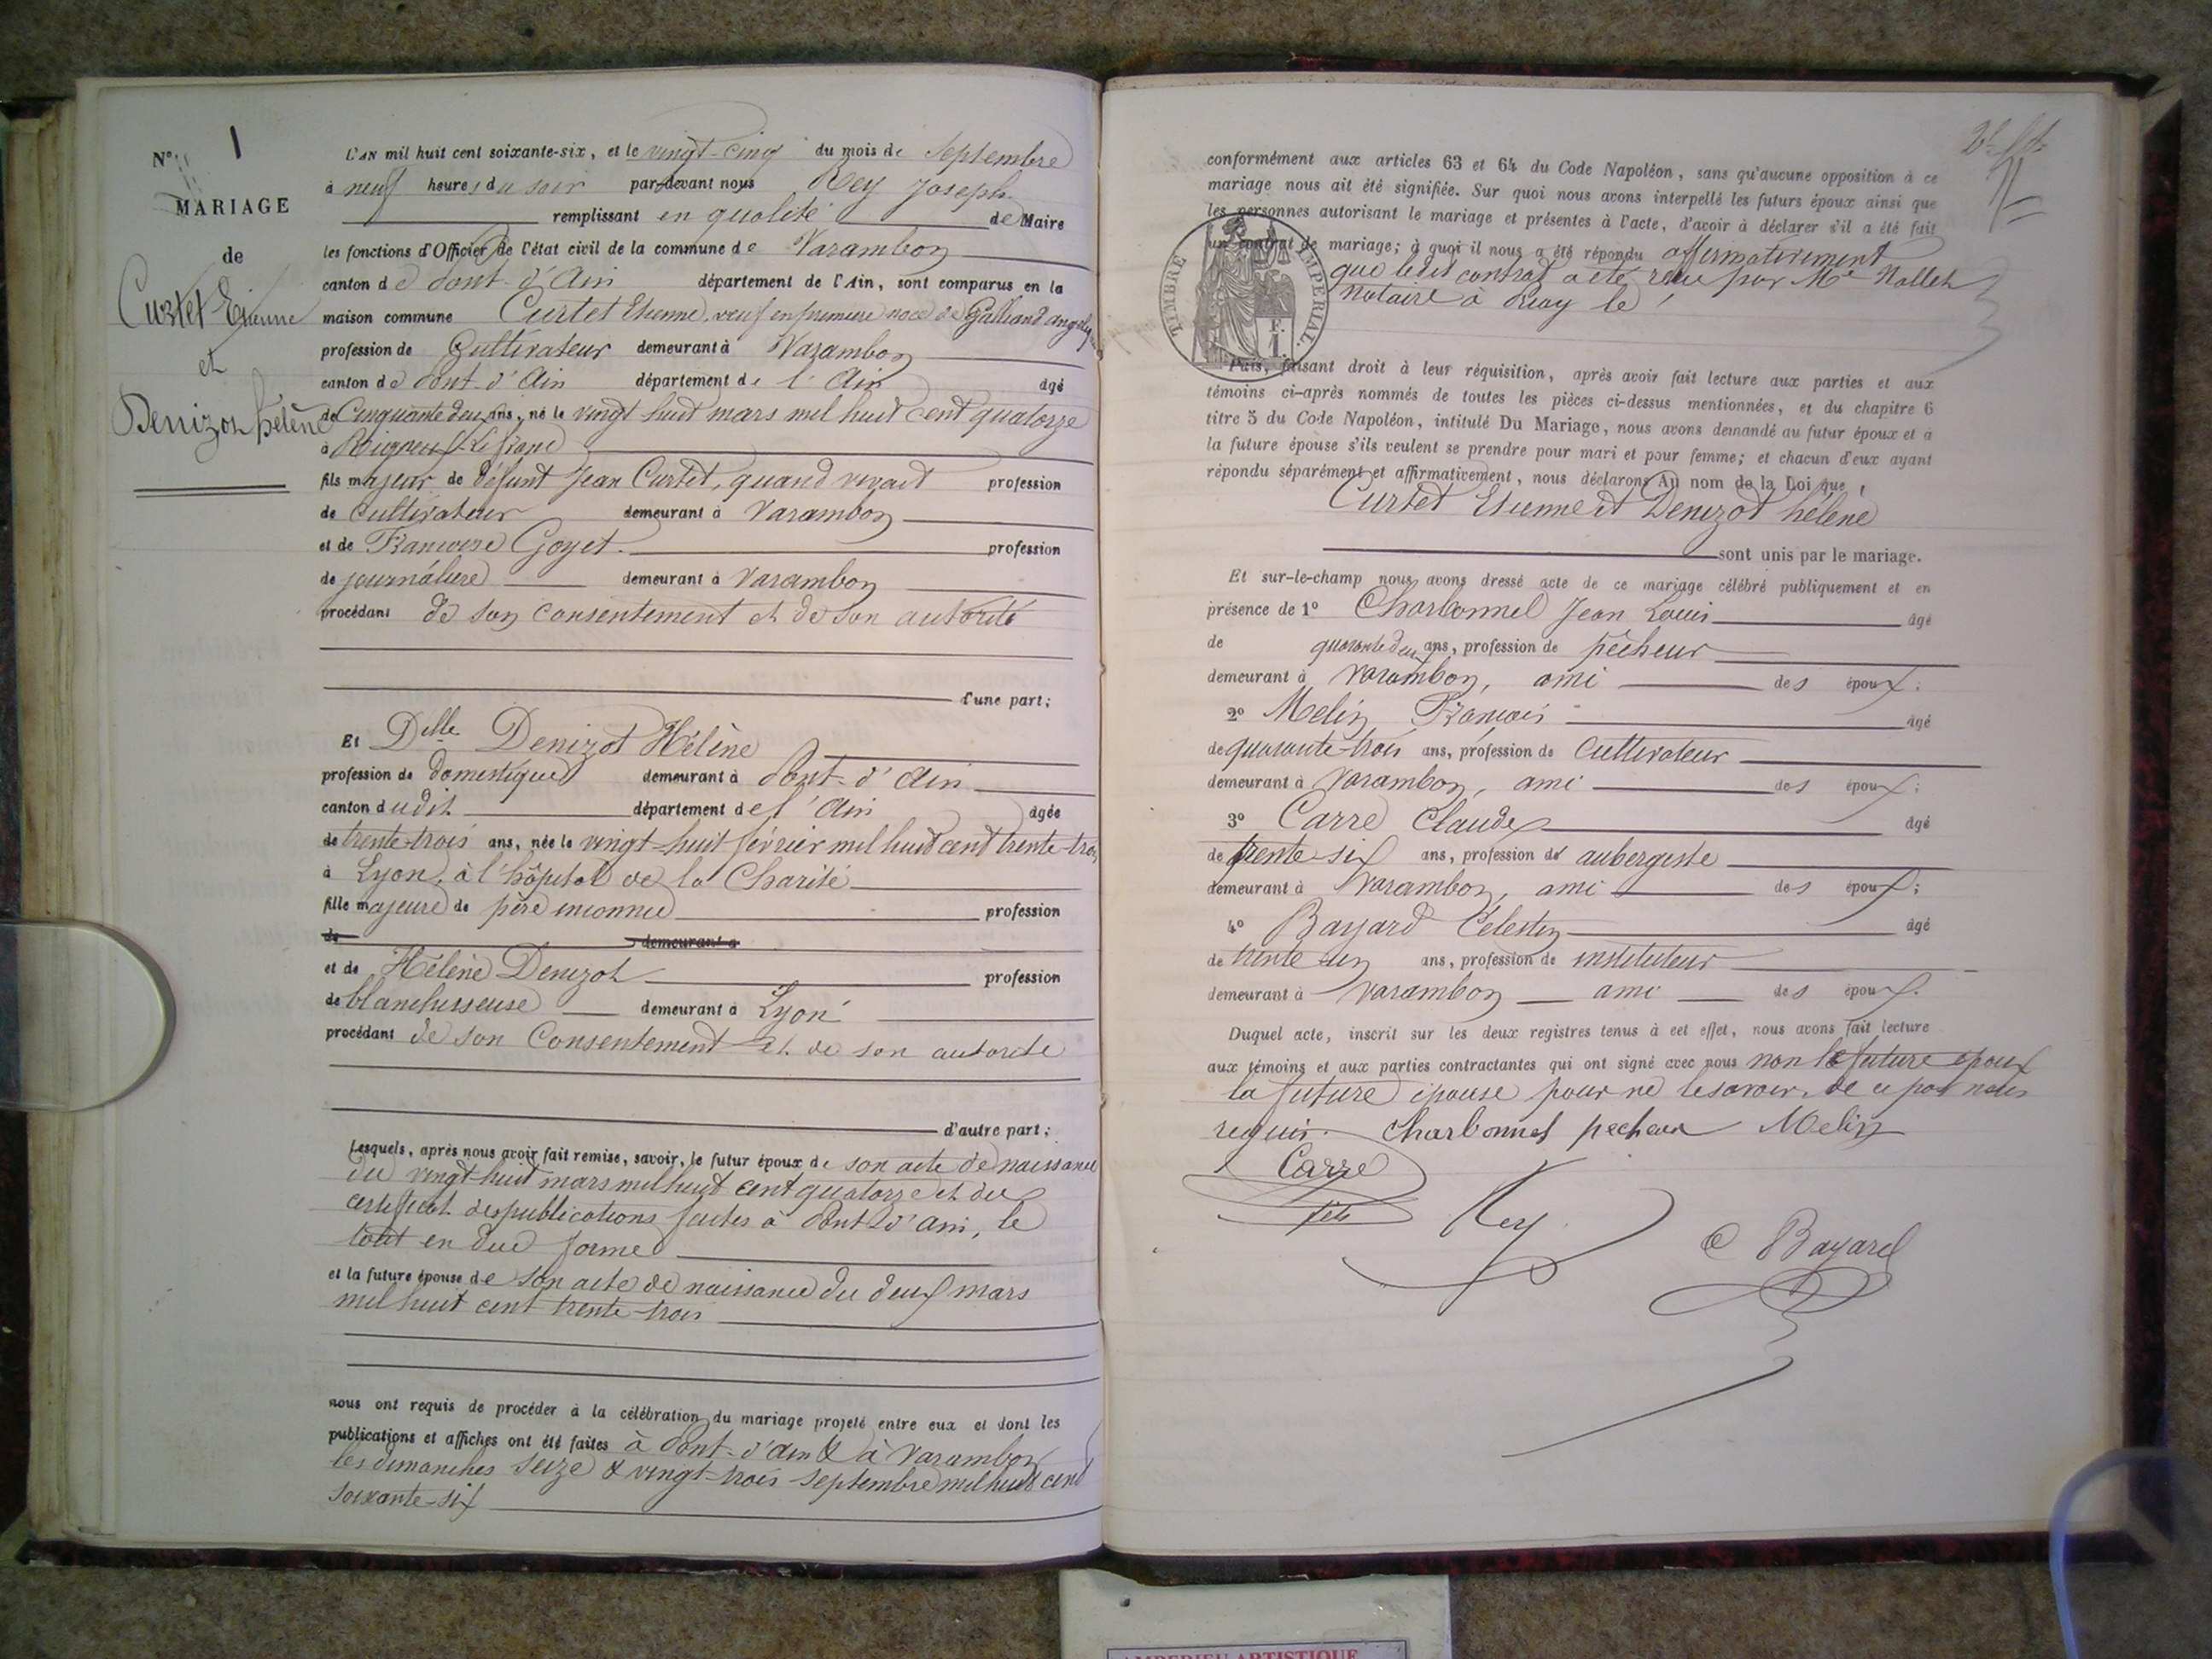 N° 1
MARIAGE
de
Curtet Etienne
et
Denizot hélène
L'AN mil huit cent soixante-six, et le vingt-cinq du mois de Septembre
à neuf heures du soir par-devant nous Rey Joseph
remplissant en qualité de Maire
les fonctions d'Officier de l'état civil de la commune de Varambon
canton de Pont-d'Ain département de l'Ain, sont comparus en la
maison commune Curtet Etienne, veuf en premiere noce de
profession de Cultivateur demeurant à Varambon
canton de Pont-d'Ain département de l'Ain âgé
de Cinquante deux ans, né le vingt huit mars mil huit cent quatorze
à
fils majeur de défunt Jean Curtet, quand vivait profession
de Cultivateur demeurant à Varambon
et de Francoise Goyet profession
de journalière demeurant à Varambon
procédant de son consentement et de son autorité
d'une part;
Et Delle Denizot Hélène
profession de domestique demeurant à Pont-d'Ain
canton dudit département de l'Ain âgée
de trente-trois ans, née le vingt-huit février mil huit cent trente-trois
à Lyon, à l'hôpital de la Charité
fille majeure de père inconnu profession
de demeurant à
et de Hélène Denizot profession
de blanchisseuse demeurant à Lyon
procédant de son Consentement et de son autorité
d'autre part;
Lesquels, après nous avoir fait remise, savoir, le futur époux de son acte de naissance
du vingt-huit mars mil huit cent quatorze et du
certificat des publications faites à Pont d'ain, le
tout en due forme
et la future épouse de son acte de naissance du deux mars
mil huit cent trente-trois
nous ont requis de procéder à la célébration du mariage projeté entre eux et dont les
publications et affiches ont été faites à Pont-d'ain & à Varambon
les dimanches seize & vingt-trois septembre mil huit cent
soixante-six
conformément aux articles 63 et 64 du Code Napoléon, sans qu'aucune opposition à ce
mariage nous ait été signifiée. Sur quoi nous avons interpellé les futurs époux ainsi que
les personnes autorisant le mariage et présentes à l'acte, d'avoir à déclarer s'il a été fait
un contrat de mariage; à quoi il nous a été répondu affirmativement
que ledit contrat a été reçu par Me
notaire à le
TIMBRE IMPERIAL.
Puis, faisant droit à leur réquisition, après avoir fait lecture aux parties et aux
témoins ci-après nommés de toutes les pièces ci-dessus mentionnées, et du chapitre 6
titre 5 du Code Napoléon, intitulé Du Mariage, nous avons demandé au futur époux et à
la future épouse s'ils veulent se prendre pour mari et pour femme; et chacun d'eux ayant
répondu séparément et affirmativement, nous déclarons Au nom de la Loi que
Curtet Etienne et Denizot hélène
sont unis par le mariage.
Et sur-le-champ nous avons dressé acte de ce mariage célébré publiquement et en
présence de 1° Charbonnel Jean Louis âgé
de quarante deux ans, profession de pêcheur
demeurant à Varambon, ami des époux;
2° Melin François âgé
de quarante-trois ans, profession de Cultivateur
demeurant à Varambon, ami des époux;
3° Carre Claude âgé
de trente six ans, profession de aubergiste
demeurant à Varambon, ami des époux;
4° Bayard Célestin âgé
de trente un ans, profession de instituteur
demeurant à Varambon ami des époux.
Duquel acte, inscrit sur les deux registres tenus à cet effet, nous avons fait lecture
aux témoins et aux parties contractantes qui ont signé avec nous non le future époux
la future épouse pour ne le savoir, de ce par nous
requis. Charbonnel pecheur Melin
Carre
Rey
C Bayard
AMBERIEU ARTISTIQUE